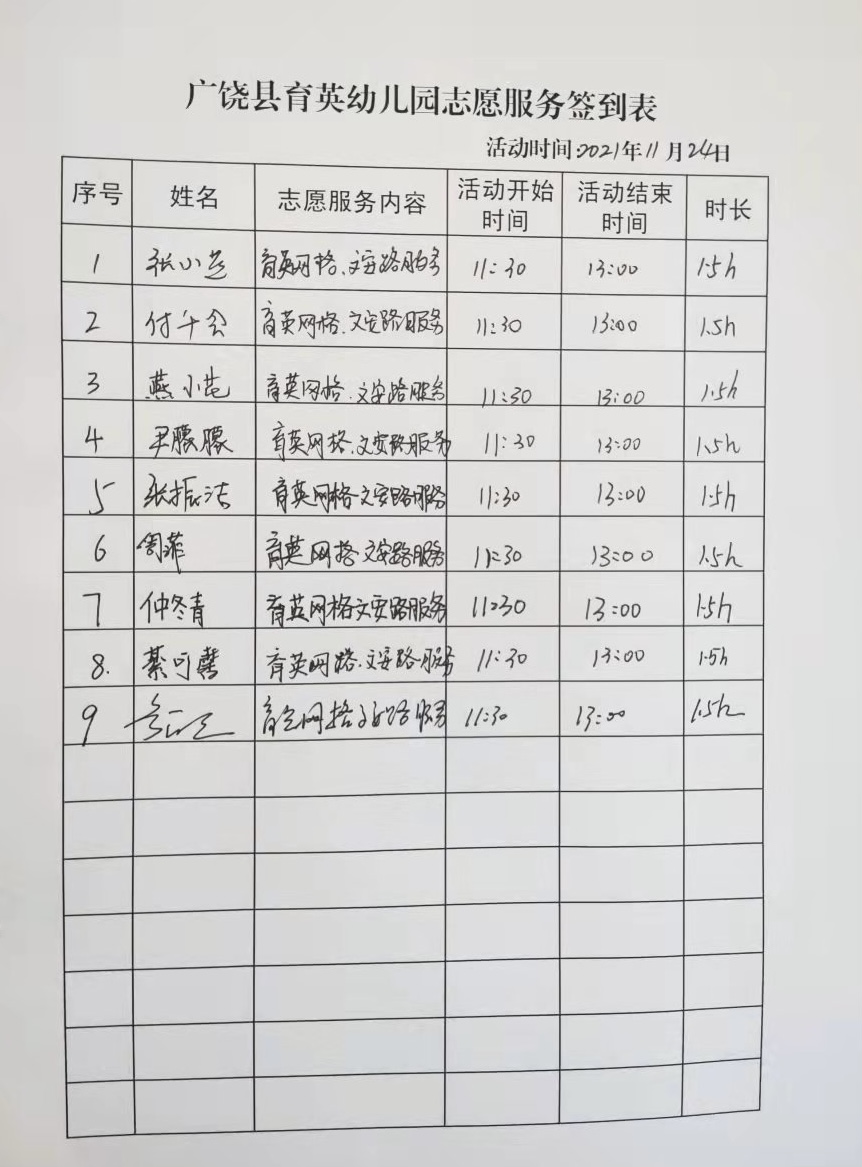 广饶县育英幼儿园志愿服务签到表
活动时间:2021年11月24日
序号 姓名 志愿服务内容 活动开始时间 活动结束时间 时长
1 张小芝 育英网格、文安路服务 11:30 13:00 1.5h
2 付千会 育英网格、文安路服务 11:30 13:00 1.5h
3 燕小芼 育英网格、文安路服务 11:30 13:00 1.5h
4 尹朦朦 育英网格、文安路服务 11:30 13:00 1.5h
5 张振洁 育英网格文安路服务 11:30 13:00 1.5h
6 周菲 育英网格文安路服务 11:30 13:00 1.5h
7 仲冬青 育英网格文安路服务 11:30 13:00 1.5h
8. 綦可馨 育英网路、文安路服务 11:30 13:00 1.5h
9 网格 路服务 11:30 13:00 1.5h